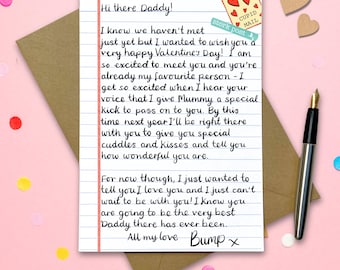 Hi there Daddy!
CUPID
MAIL
I know we haven't met
just yet but I wanted to wish you a
very happy Valentines Day! I am
so excited to meet you and you're
already my favourite person - I
get so excited when I hear your
voice that I give Mummy a special
kick to pass on to you. By this
time next year I'll be right there
with you to give you special
cuddles and kisses and tell you
how wonderful you are.
For now though, I just wanted to
tell you I love you and I just can't
wait to be with you! I know you
are going to be the very best
Daddy there has ever been.
All my love Bump x